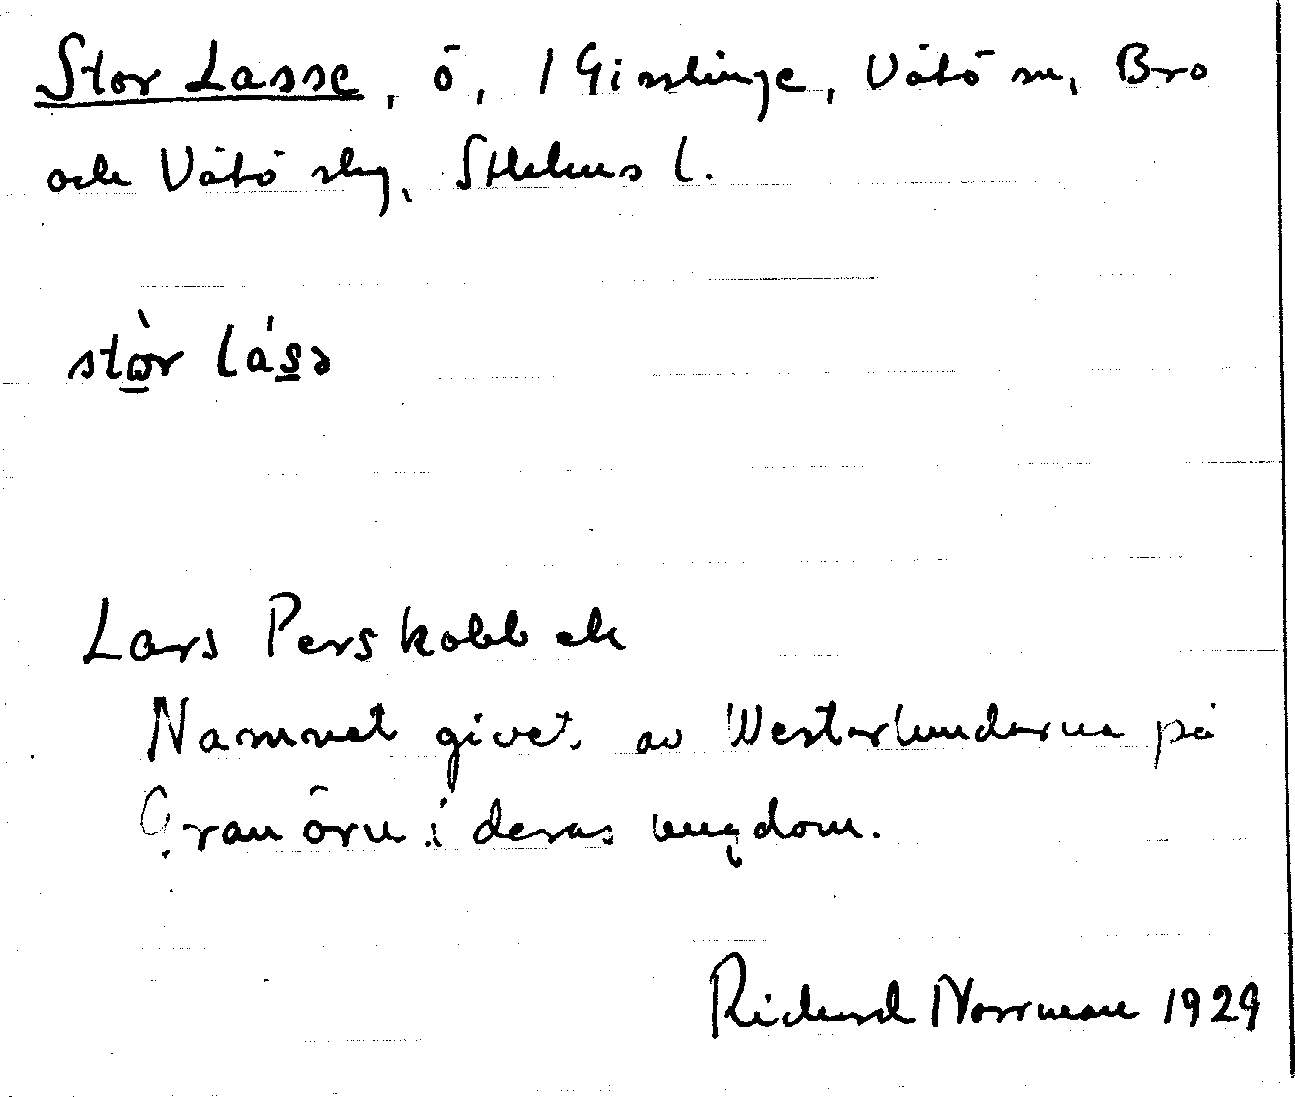 Stor Lasse, ö, 1 Gisslinge, Vätö sn, Bro
och Vätö skg, Sthlms l.
stòr lásə
Lars Perskobb ell
Namnet givet av Westerlundarna på
Granörn i deras ungdom.
Richard Norrman 1929